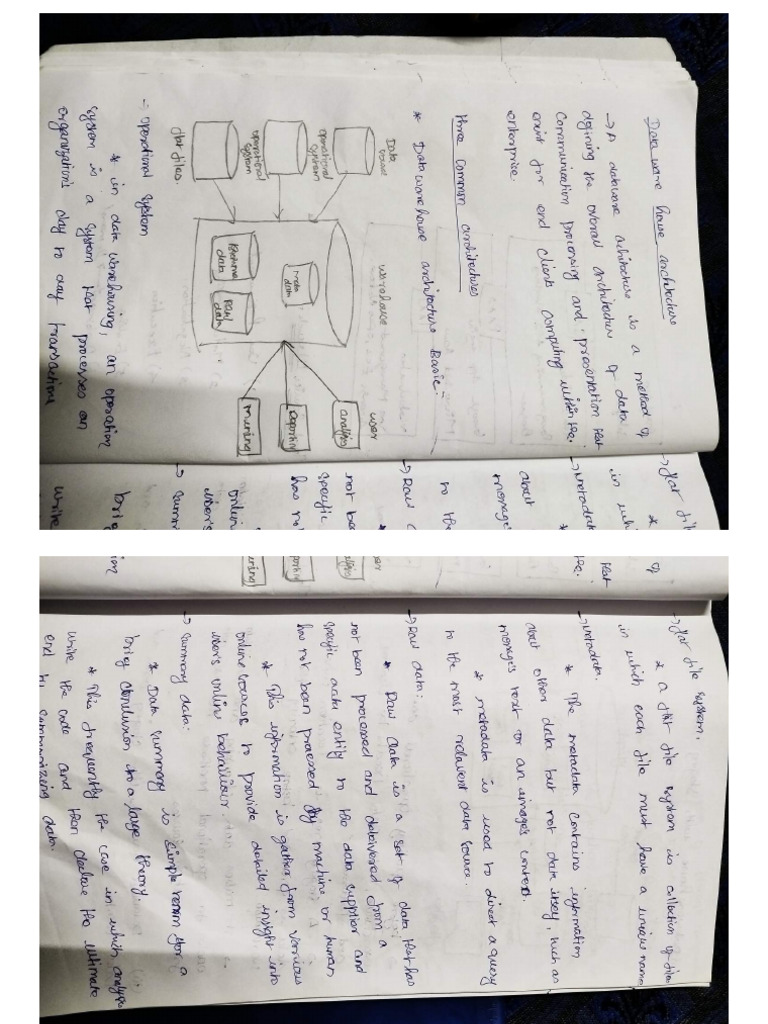 Data ware house architecture
→ A dataware achitecture is a method of
defining the overall architecture of data
Communication processing and presentation that
exist for end client computing within the
enterprise.
three Common architectures
* Data ware house architecture Basic =
Data
operational
system
operational
system
flat files.
warehouse
meta
data
Raw
data
user
analysis
reporting
mining
→ operational system
* in data warehousing, an operation
system is a system that processes an
organization's day to day transactions
→ flat file system.
* a flat file system is collection of files
in which each file must have a unique name
→ Metadata:
* The metadata contains information
about other data but not data itself, such as
message's text or an image's content.
* metadata is used to direct a query
to the most relevent data source.
→ Raw data:
* Raw data is a set of data that has
not been processed and delivered from a
specific data entity to the data supplier and
has not been processed by machine or human
* This information is gather from various
online sources to provide detailed insight into
user's online behaviour.
→ Summary data:
* Data summary is simple term for a
brief conclusion to a large theory
* This frequently the case in which analyse
write the code and then declare the ultimate
end by summarizing data.